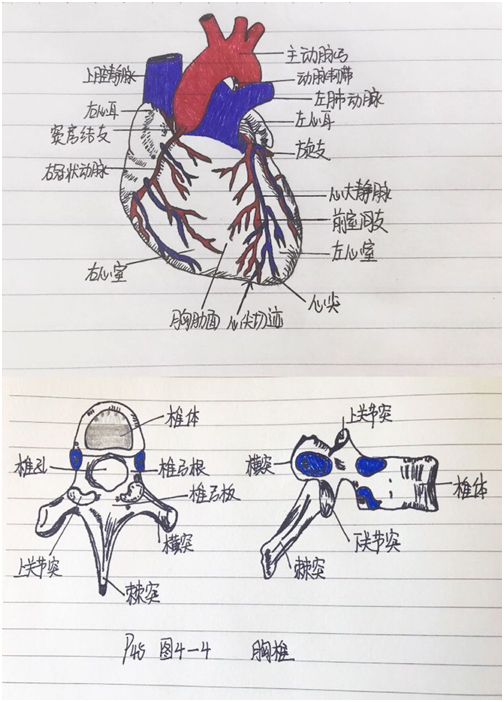 主动脉弓
上腔静脉
动脉韧带
左肺动脉
右心耳
左心耳
窦房结支
左旋支
右冠状动脉
心大静脉
前室间支
左心室
右心室
心尖
胸肋面
心尖切迹
椎体
上关节突
椎孔
椎弓根
横突
椎弓板
椎体
横突
上关节突
下关节突
棘突
棘突
P45 图4-4 胸椎